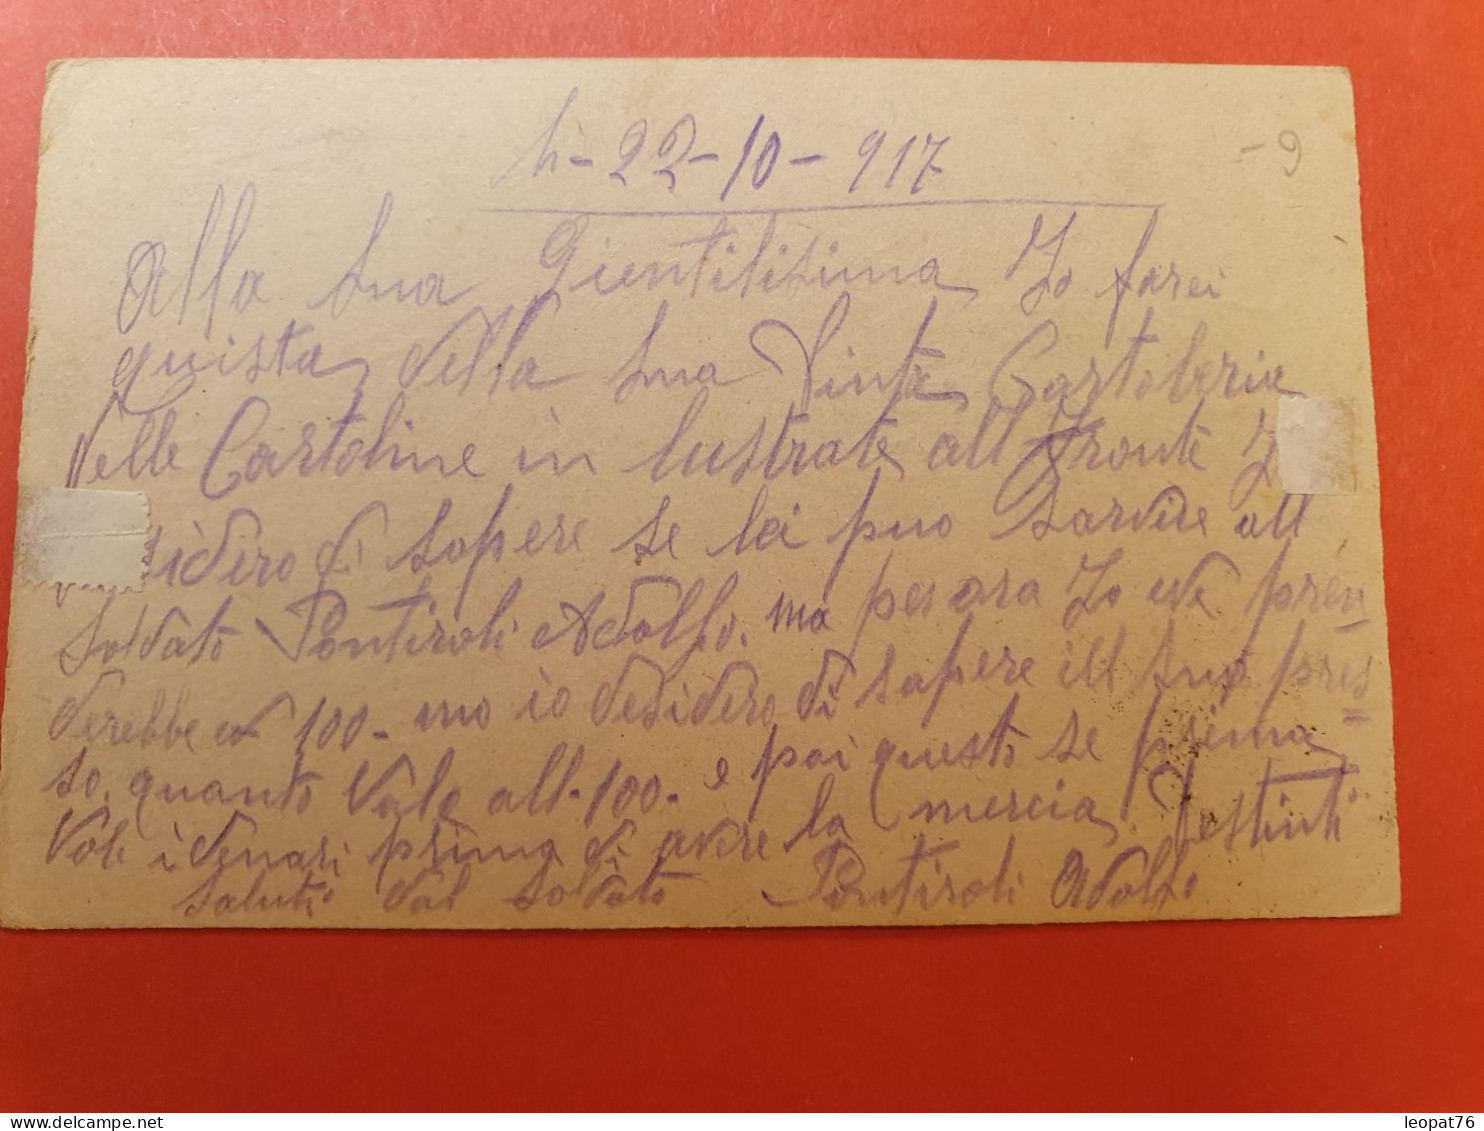 li - 22 - 10 - 917
- 9
Alla sua Gientilisima Io farei
quista della sua Cartoleria
Nelle Cartoline in lustrate all Fronte I
sidero di sapere se lei puo sarvire all
Soldato Pontiroli Adolfo. ma per ora Io ne pren
derebbe 100 - mo io desidero di sapere ill suo pres
so. quanto Vale all - 100 - e poi questo se prima
Vole i denari prima di avere la mercia Destinti
Saluti dal Soldato Pontiroli Adolfo
leopat76